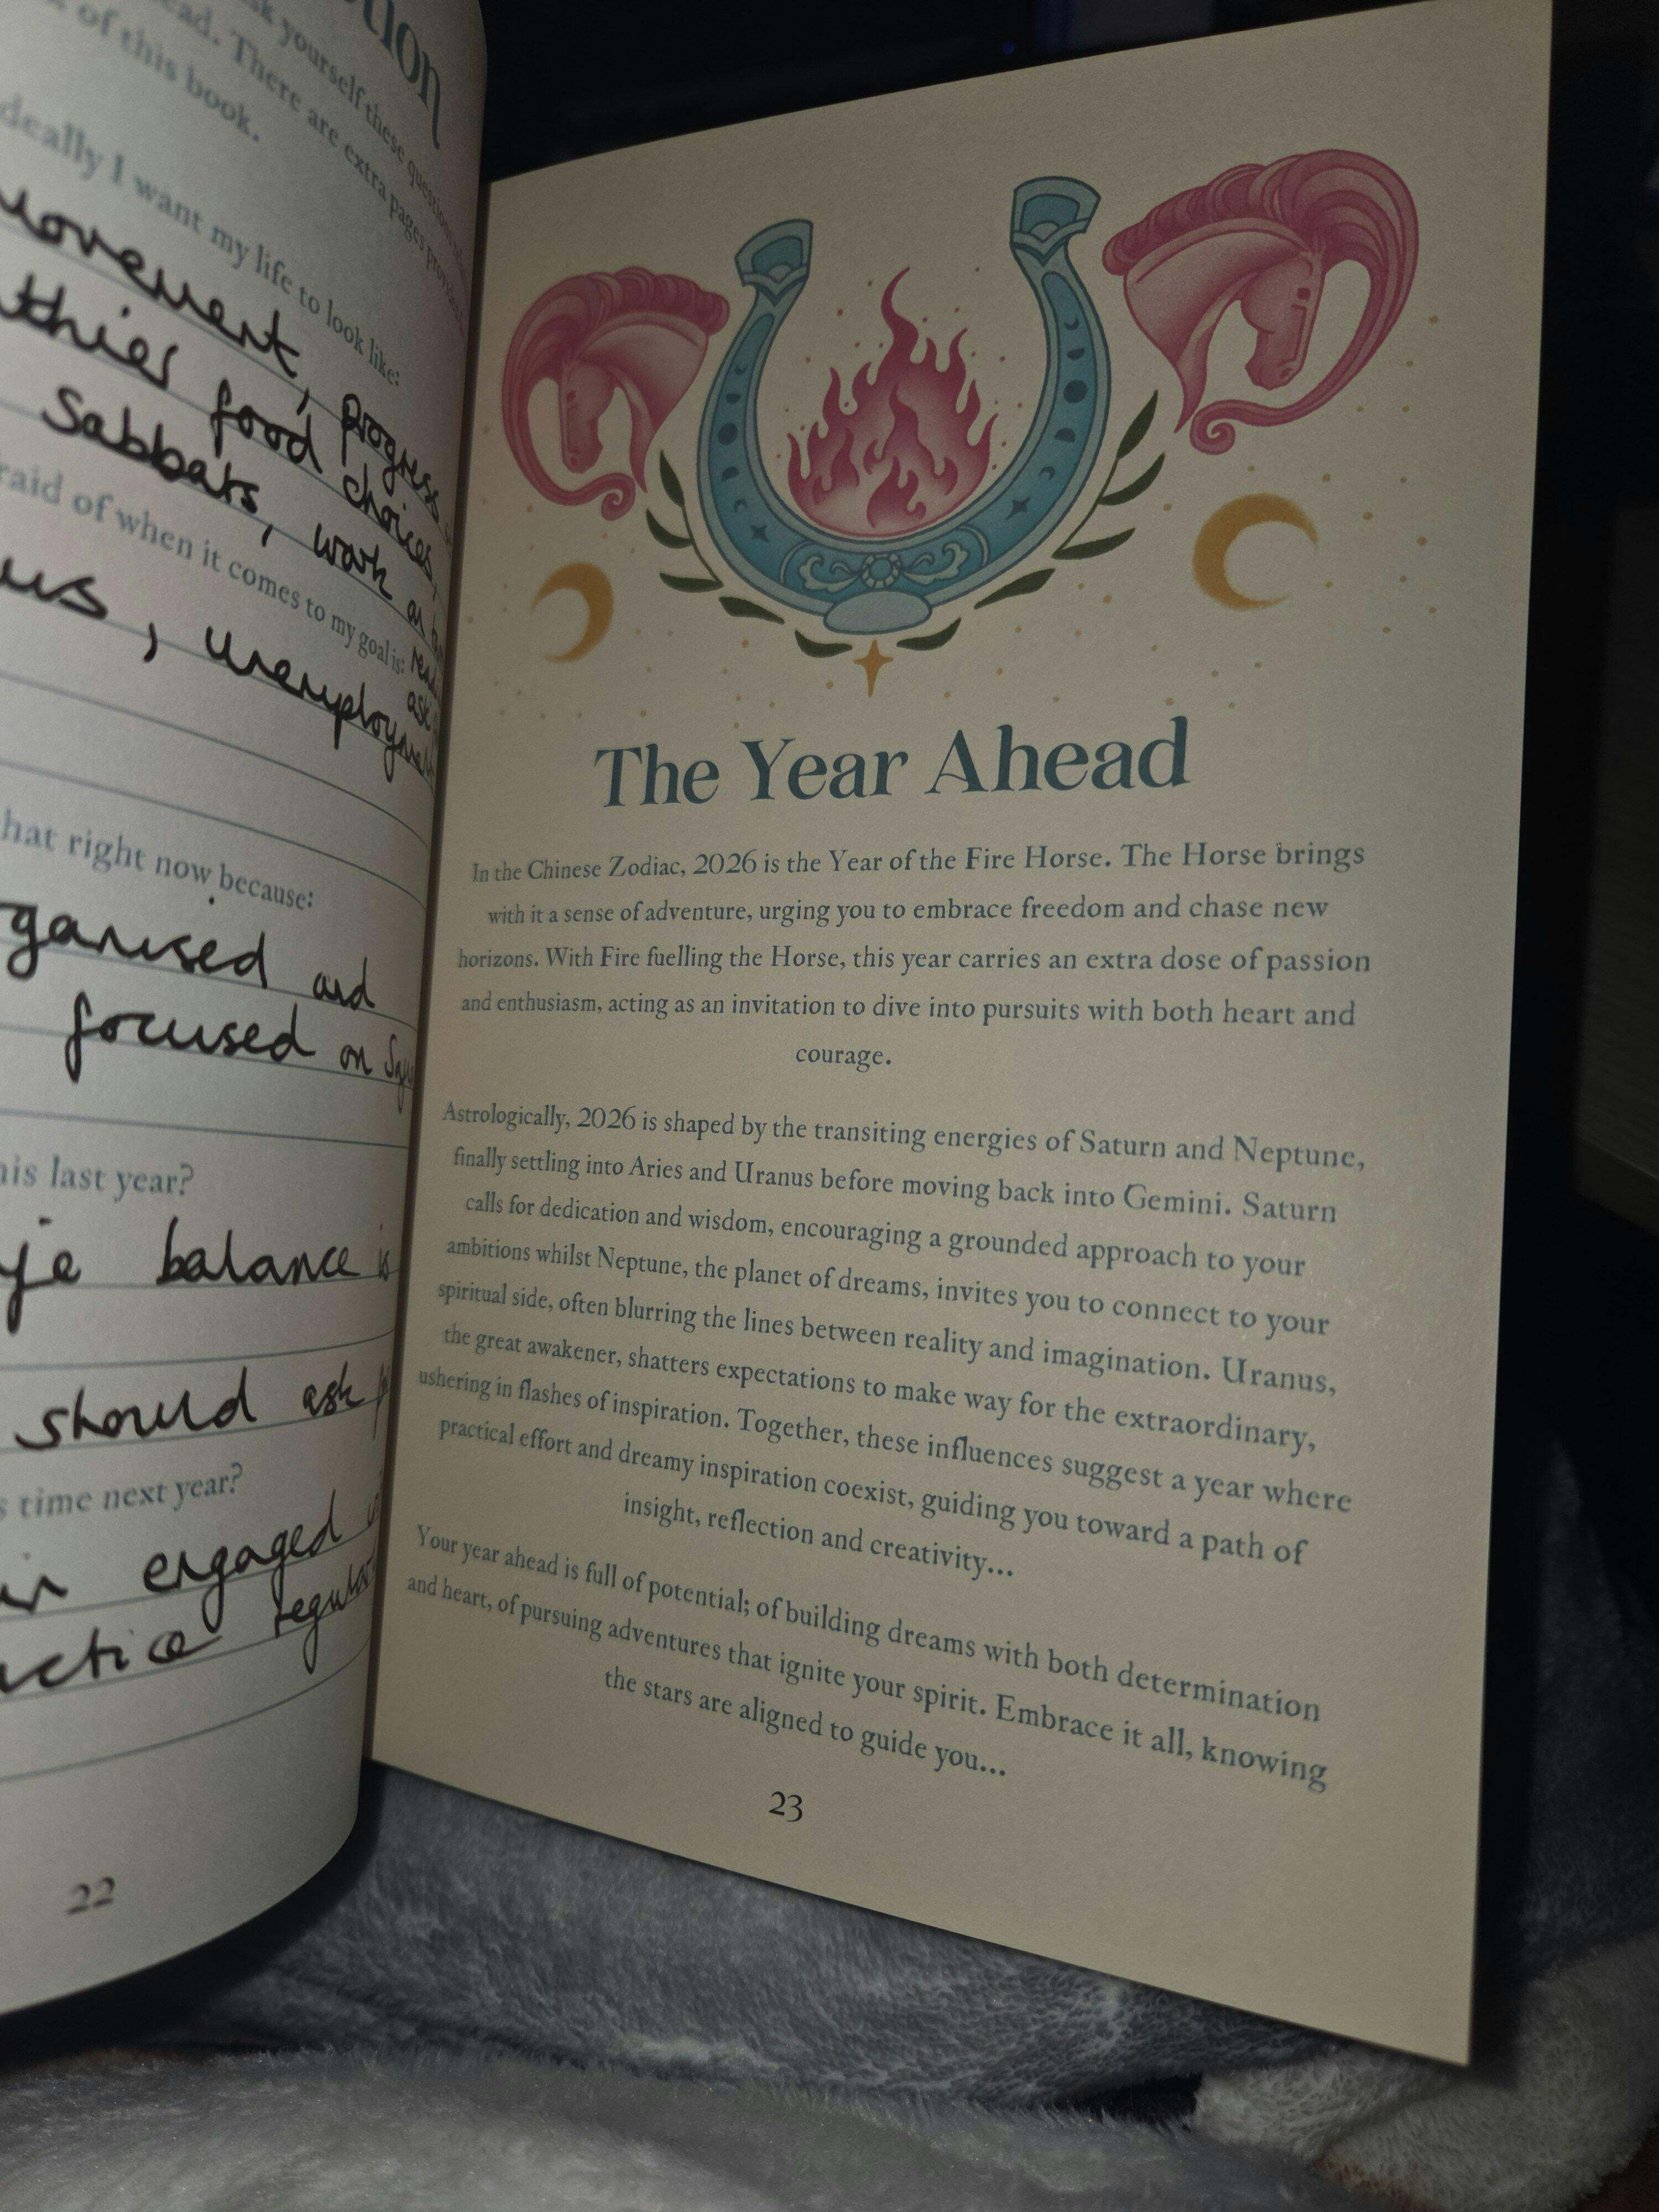 ction
ask yourself these questions
ead. There are extra pages provided
of this book.
deally I want my life to look like:
movement, progress
thier food choices,
Sabbats, work on
raid of when it comes to my goal is:
us, unemployment
hat right now because:
rganised and
focused on
his last year?
balance is
should ask
s time next year?
engaged
actice regular
22
The Year Ahead
In the Chinese Zodiac, 2026 is the Year of the Fire Horse. The Horse brings
with it a sense of adventure, urging you to embrace freedom and chase new
horizons. With Fire fuelling the Horse, this year carries an extra dose of passion
and enthusiasm, acting as an invitation to dive into pursuits with both heart and
courage.
Astrologically, 2026 is shaped by the transiting energies of Saturn and Neptune,
finally settling into Aries and Uranus before moving back into Gemini. Saturn
calls for dedication and wisdom, encouraging a grounded approach to your
ambitions whilst Neptune, the planet of dreams, invites you to connect to your
spiritual side, often blurring the lines between reality and imagination. Uranus,
the great awakener, shatters expectations to make way for the extraordinary,
ushering in flashes of inspiration. Together, these influences suggest a year where
practical effort and dreamy inspiration coexist, guiding you toward a path of
insight, reflection and creativity...
Your year ahead is full of potential; of building dreams with both determination
and heart, of pursuing adventures that ignite your spirit. Embrace it all, knowing
the stars are aligned to guide you...
23